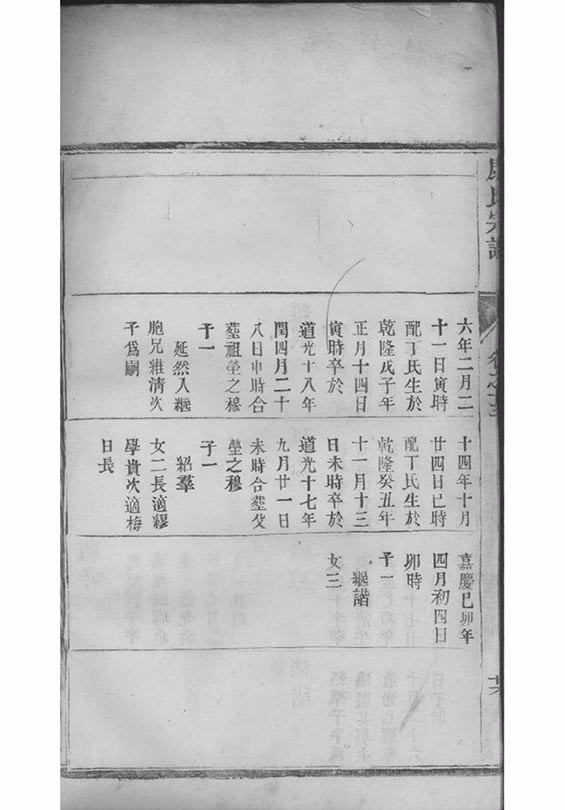 氏宗譜
六年二月二
十一日寅時
配丁氏生於
乾隆戊子年
正月十四日
寅時卒於
道光十八年
閏四月二十
八日申時合
塟祖塋之穆
子一
延然入繼
胞兄維清次
子爲嗣
十四年十月
廿四日巳時
配丁氏生於
乾隆癸丑年
十一月十三
日未時卒於
道光十七年
九月廿一日
未時合塟父
塋之穆
子一
紹羣
女二長適繆
學貴次適梅
日長
嘉慶巳卯年
四月初四日
卯時
子一
繼諧
女三